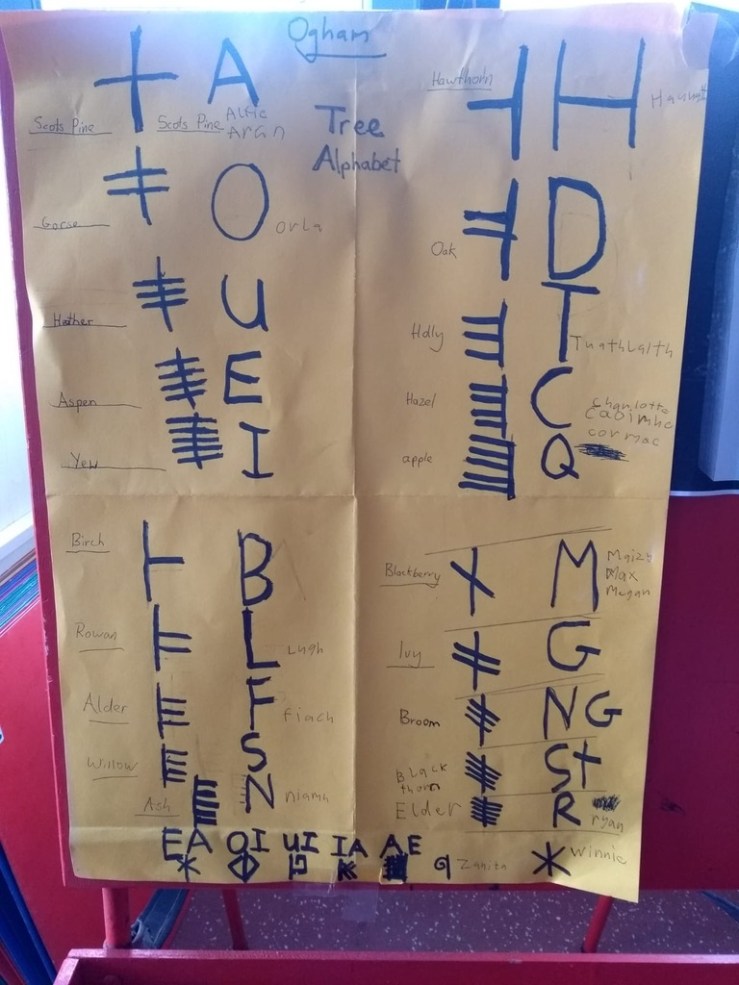 Ogham
Tree
Alphabet
Scots Pine
A
Scots Pine
Gorse
O
Orla
Hather
U
Aspen
E
Yew
I
Hawthorn
H
Oak
D
Holly
T
Tuathlaith
Hazel
C
Charlotte
Caoimhe
cormac
apple
Q
Birch
B
Rowan
L
Lugh
Alder
F
fiach
Willow
S
Ash
N
niamh
Blackberry
M
Maizy
Max
Megan
Ivy
G
Broom
NG
Black
thorn
St
Elder
R
ryan
EA OI UI IA AE
Zanita
Winnie